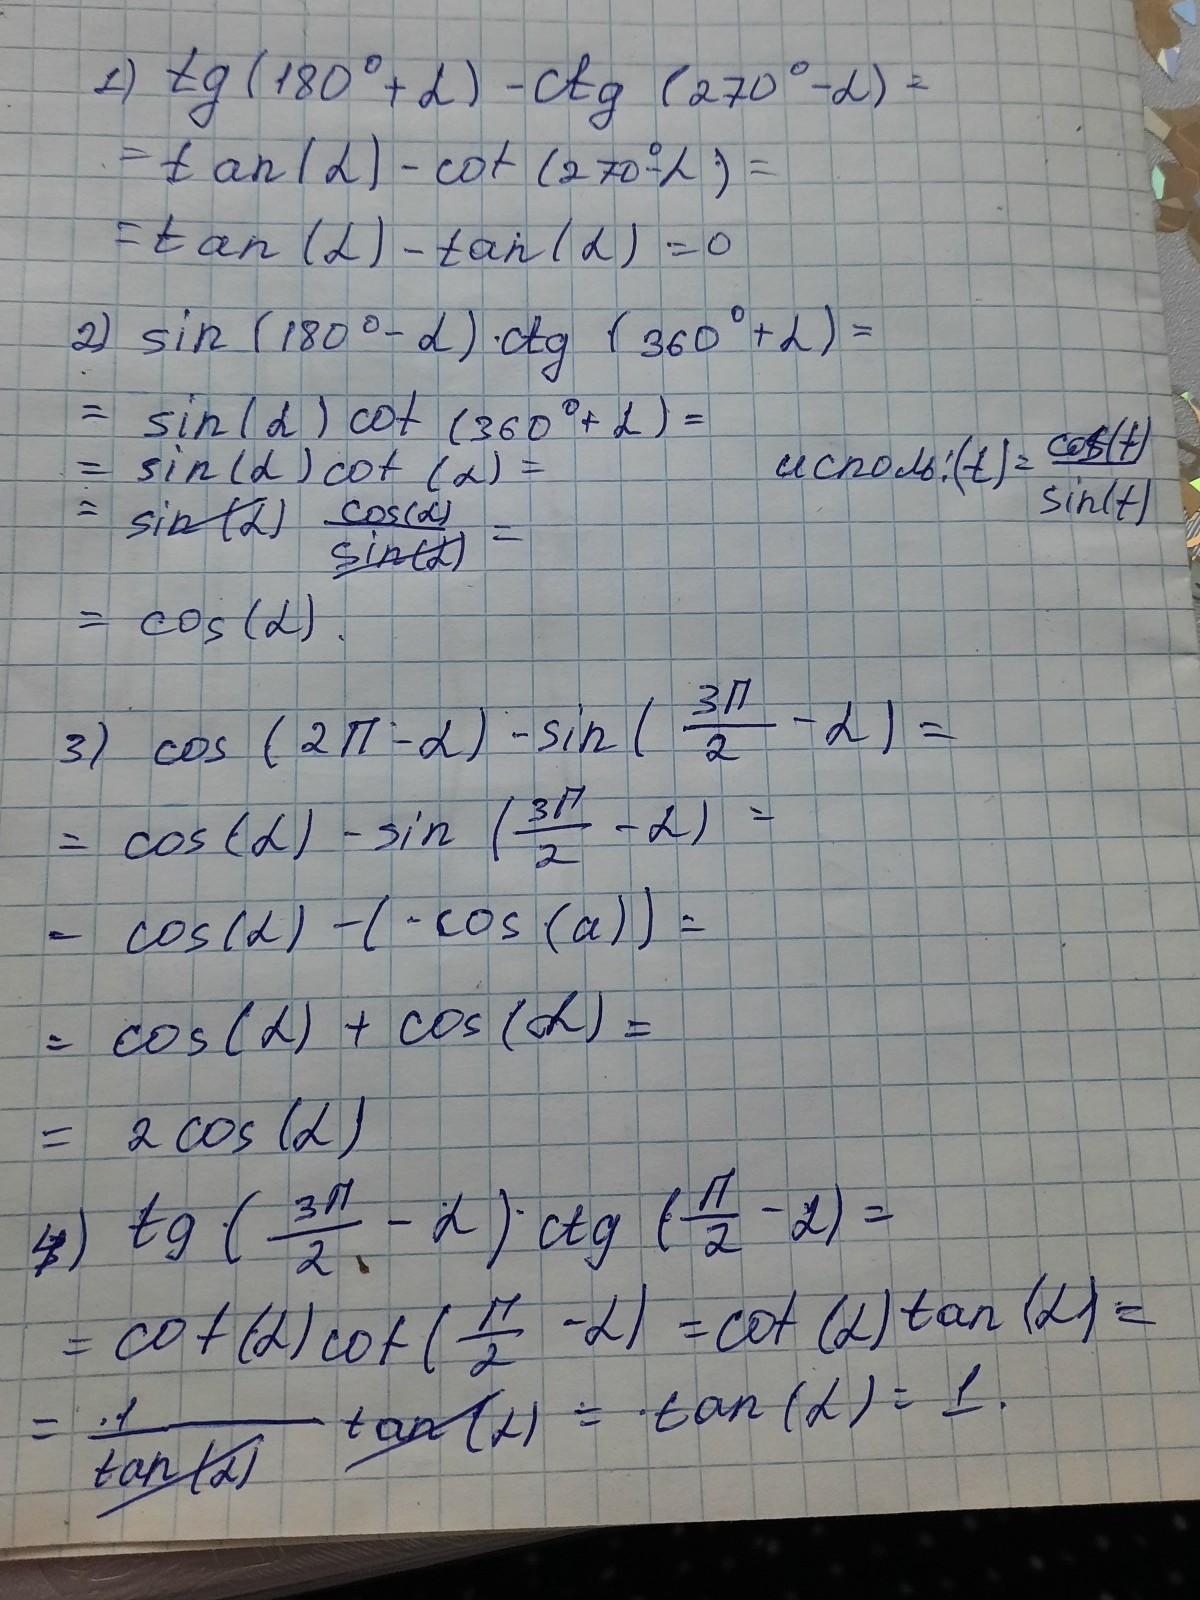 1) tg(180°+α)-ctg(270°-α)=
=tan(α)-cot(270°-α)=
=tan(α)-tan(α)=0
2) sin(180°-α)·ctg(360°+α)=
=sin(α)cot(360°+α)=
=sin(α)cot(α)=
исполь:(t)=cos(t)/sin(t)
=sin(α) cos(α)/sin(α)=
=cos(α).
3) cos(2π-α)-sin(3π/2-α)=
=cos(α)-sin(3π/2-α)=
=cos(α)-(-cos(a))=
=cos(α)+cos(α)=
=2cos(α)
4) tg(3π/2-α)·ctg(π/2-α)=
=cot(α)cot(π/2-α)=cot(α)tan(α)=
=1/tan(α) tan(α)=tan(α)=1.